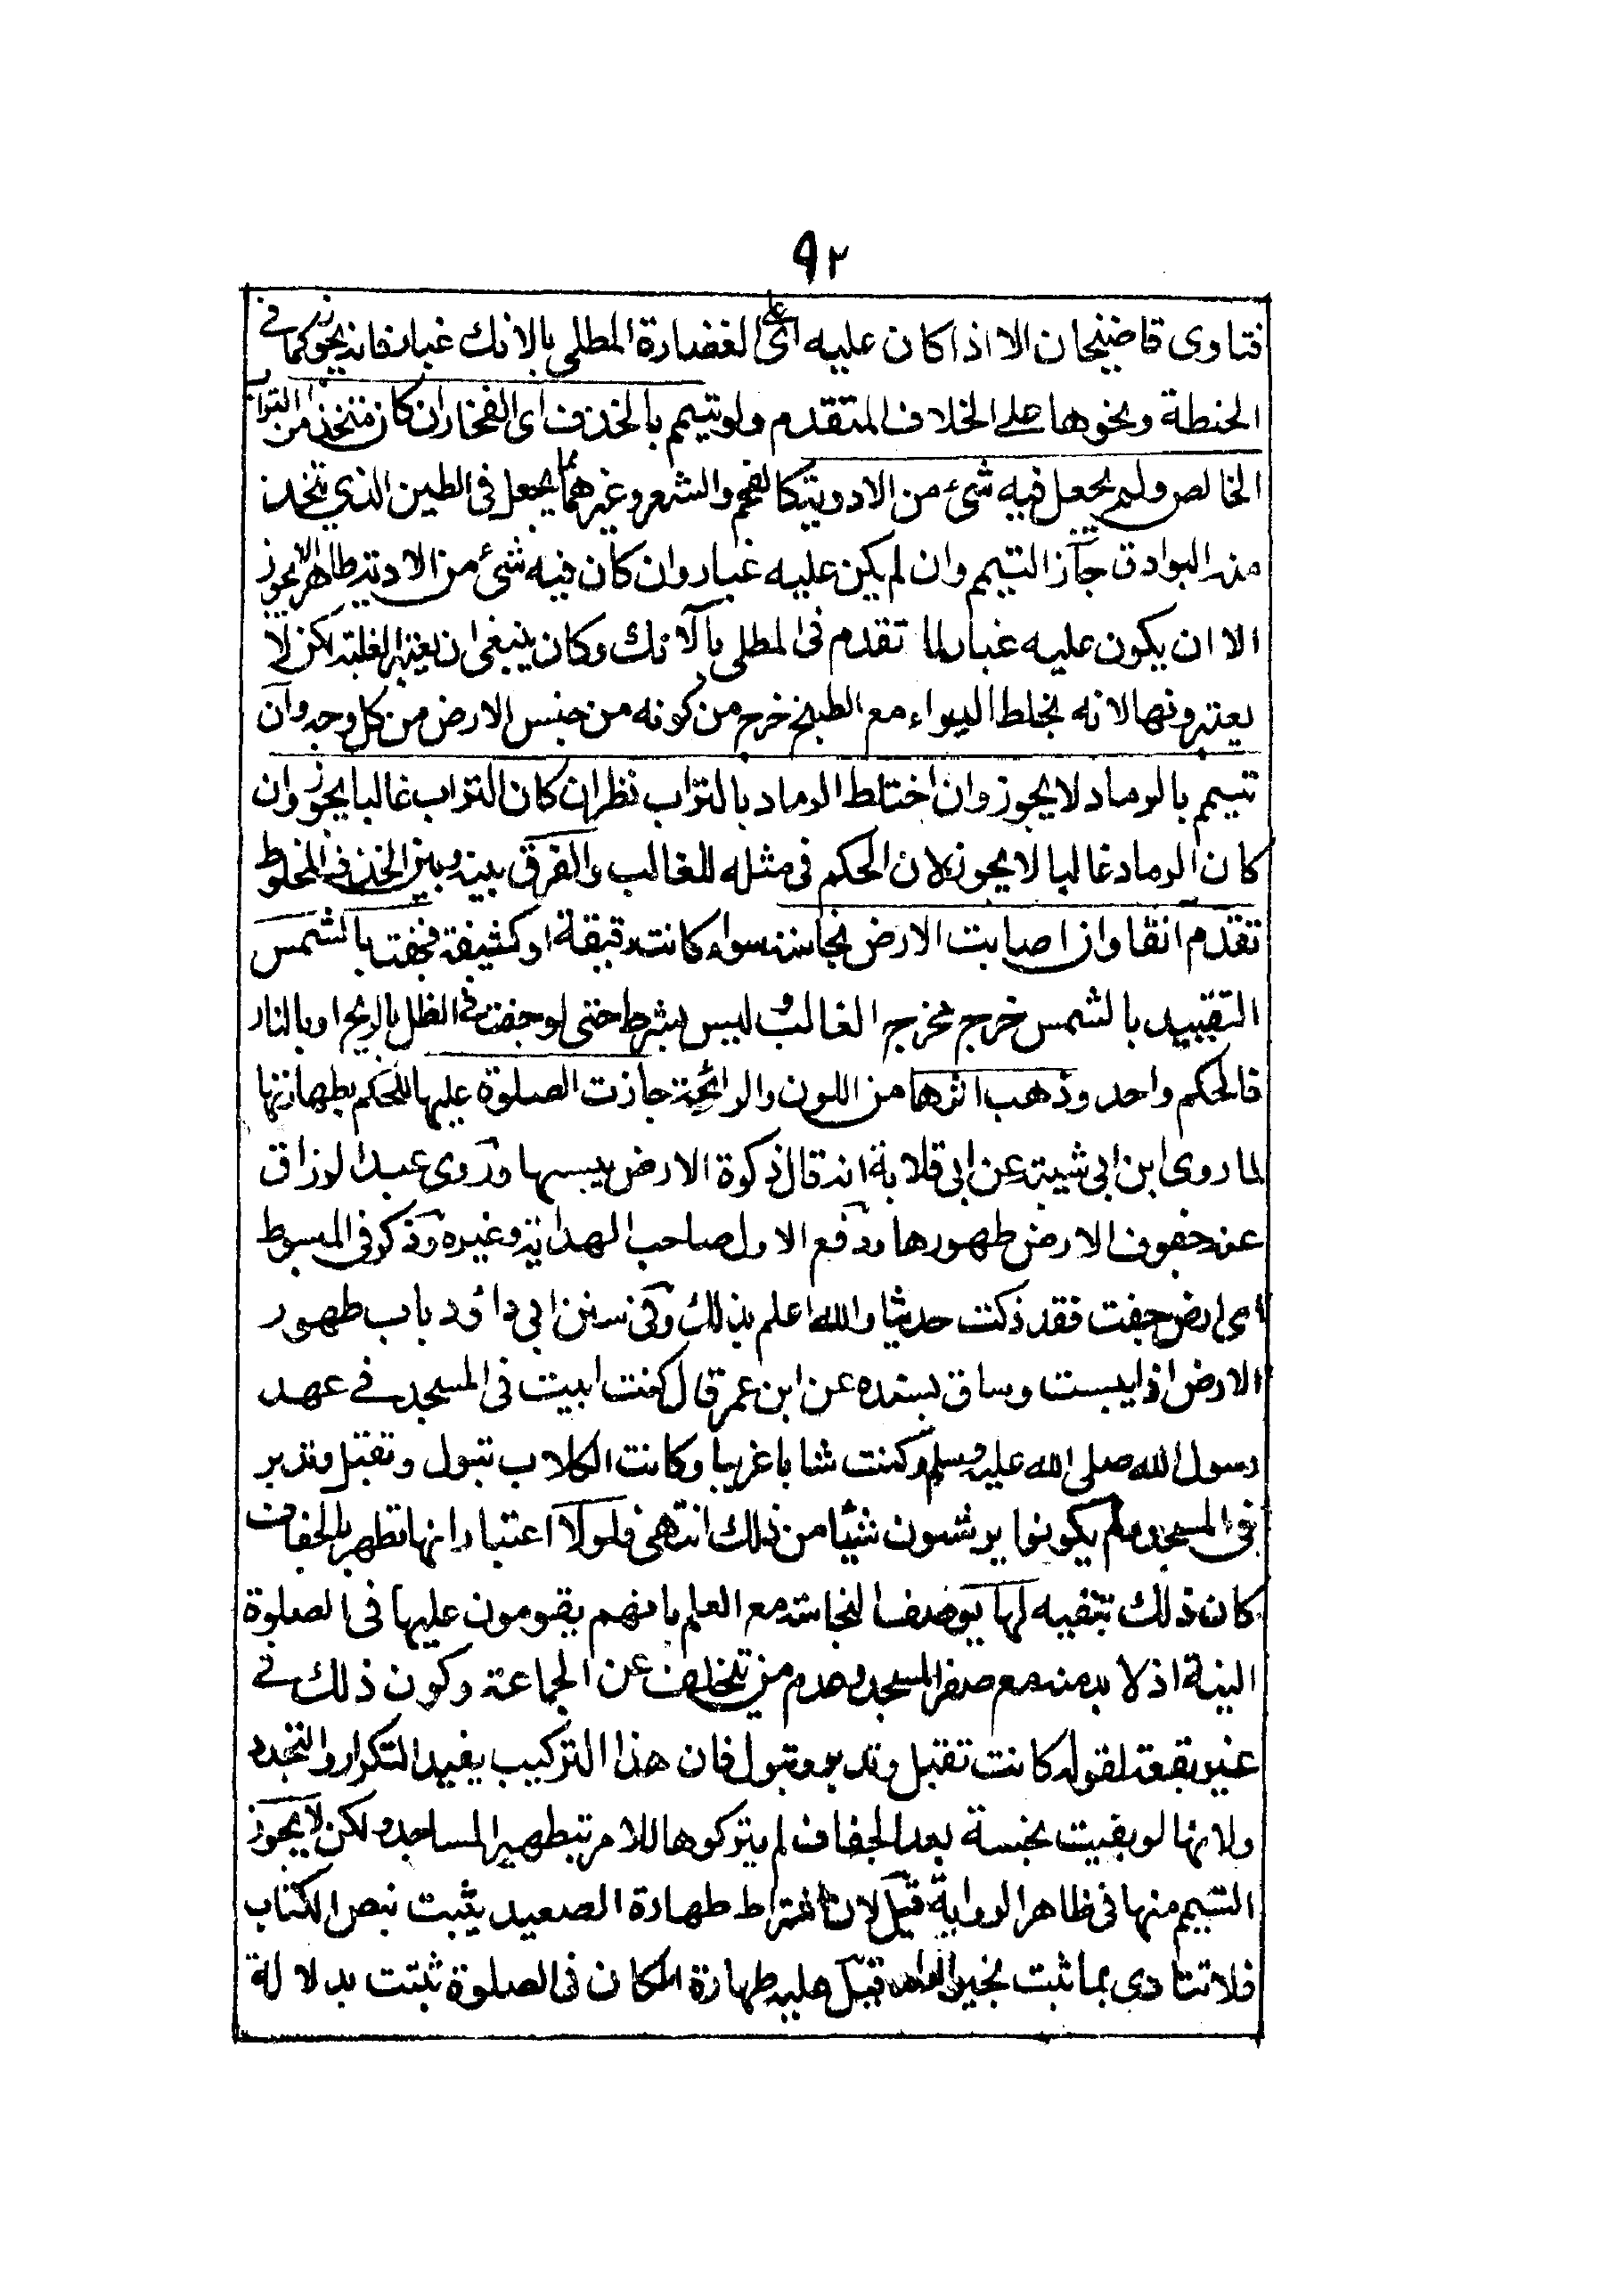 ٩٢
فتاوى قاضيخان الا اذا كان عليه اى على الغضارة المطلى بالانك غبار فانه يجوز كما فى
الحنطة ونحوها على الخلاف المتقدم ولو تيمم بالخزف اى الفخار ان كان متخذا من التراب
الخالص ولم يجعل فيه شىء من الادوية كالفحم والشعر وغيرهما مما يجعل فى الطين الذي يتخذ
منه البوادق جاز التيمم وان لم يكن عليه غبار وان كان فيه شىء من الادوية طاهر لا يجوز
الا ان يكون عليه غبار لما تقدم فى المطلى بالآنك وكان ينبغى ان يعتبر الغلبة لكن لا
يعتبرونها لانه بخلط الدواء مع الطبخ خرج من كونه من جنس الارض من كل وجه وان
تيمم بالرماد لا يجوز وان اختلط الرماد بالتراب نظر ان كان التراب غالبا يجوز وان
كان الرماد غالبا لا يجوز لان الحكم فى مثله للغالب والفرق بينه وبين الخزف المخلوط
تقدم آنفا وان اصابت الارض نجاسة سواء كانت رقيقة او كثيفة فجفت بالشمس
التقييد بالشمس خرج مخرج الغالب وليس بشرط حتى لو جفت فى الظل بالريح او بالنار
فالحكم واحد وذهب اثرها من اللون والرائحة جازت الصلوة عليها للحكم بطهارتها
لما روى ابن ابى شيبة عن ابى قلابة انه قال ذكوة الارض يبسها وروى عبد الرزاق
عنه جفوف الارض طهورها ورفع الاول صاحب الهداية وغيره وذكر فى المبسوط
اى ارض جفت فقد ذكت حديثا والله اعلم بذلك وفى سنن ابى داؤد باب طهور
الارض اذا يبست وساق بسنده عن ابن عمر قال كنت ابيت فى المسجد فى عهد
رسول الله صلى الله عليه وسلم وكنت شابا عزيبا وكانت الكلاب تبول وتقبل وتدبر
فى المسجد ولم يكونوا يرشون شيئا من ذلك انتهى فلولا اعتبار انها تطهر بالجفاف
كان ذلك تبقية لها بوصف النجاسة مع العلم بانهم يقومون عليها فى الصلوة
البتة اذ لا بد منه مع صغر المسجد وعدم من يتخلف عن الجماعة وكون ذلك فى
غير بقعة لقوله كانت تقبل وتدبر وتبول فان هذا التركيب يفيد التكرار والتجدد
ولانها لو بقيت نجسة بعد الجفاف لم يتركوها للامر بتطهير المساجد ولكن لا يجوز
التيمم منها فى ظاهر الرواية قيل لان اشتراط طهارة الصعيد يثبت بنص الكتاب
فلا تتادى بما ثبت بخبر الواحد قيل عليه طهارة المكان فى الصلوة ثبتت بدلالة